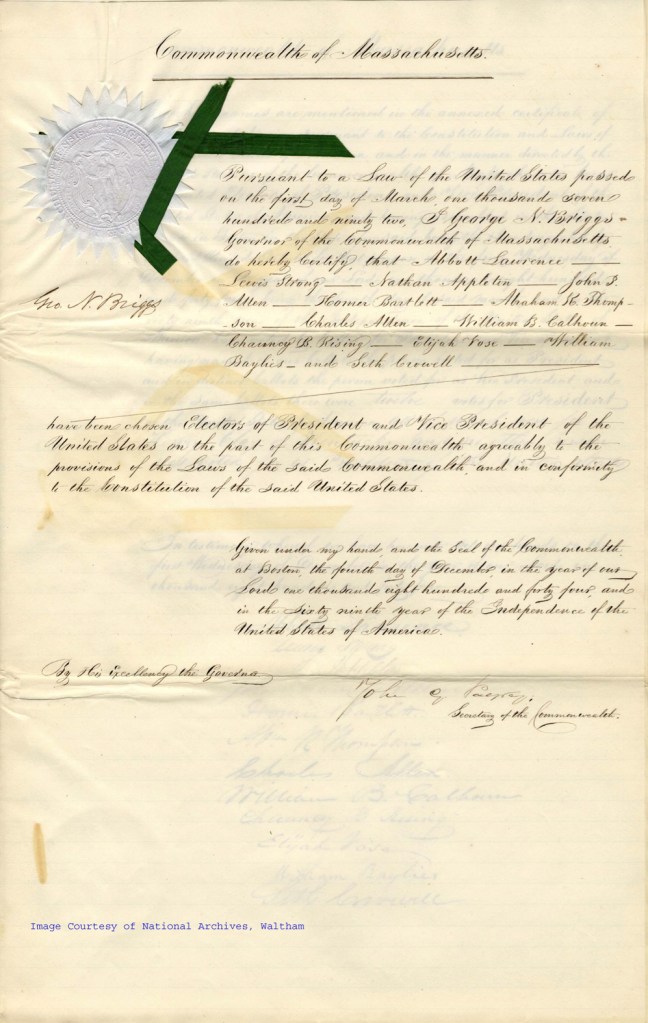 Commonwealth of Massachusetts.
Pursuant to a Law of the United States passed
on the first day of March, one thousand seven
hundred and ninety two, I George N. Briggs
Governor of the Commonwealth of Massachusetts
do hereby Certify, that Abbott Lawrence
Lewis Strong — Nathan Appleton — John P.
Allen — Homer Bartlett — Abraham R. Thomp-
son — Charles Allen — William B. Calhoun —
Chauncy B. Rising — Elijah Vose — William
Baylies — and Seth Crowell
Geo. N. Briggs
have been chosen Electors of President and Vice President of the
United States on the part of this Commonwealth agreeably to the
provisions of the Laws of the said Commonwealth, and in conformity
to the Constitution of the said United States.
Given under my hand, and the Seal of the Commonwealth,
at Boston, the fourth day of December, in the year of our
Lord one thousand eight hundred and forty four, and
in the Sixty ninth year of the Independence of the
United States of America.
By His Excellency the Governor
John
Secretary of the Commonwealth.
Charles Allen
William B. Calhoun
Image Courtesy of National Archives, Waltham